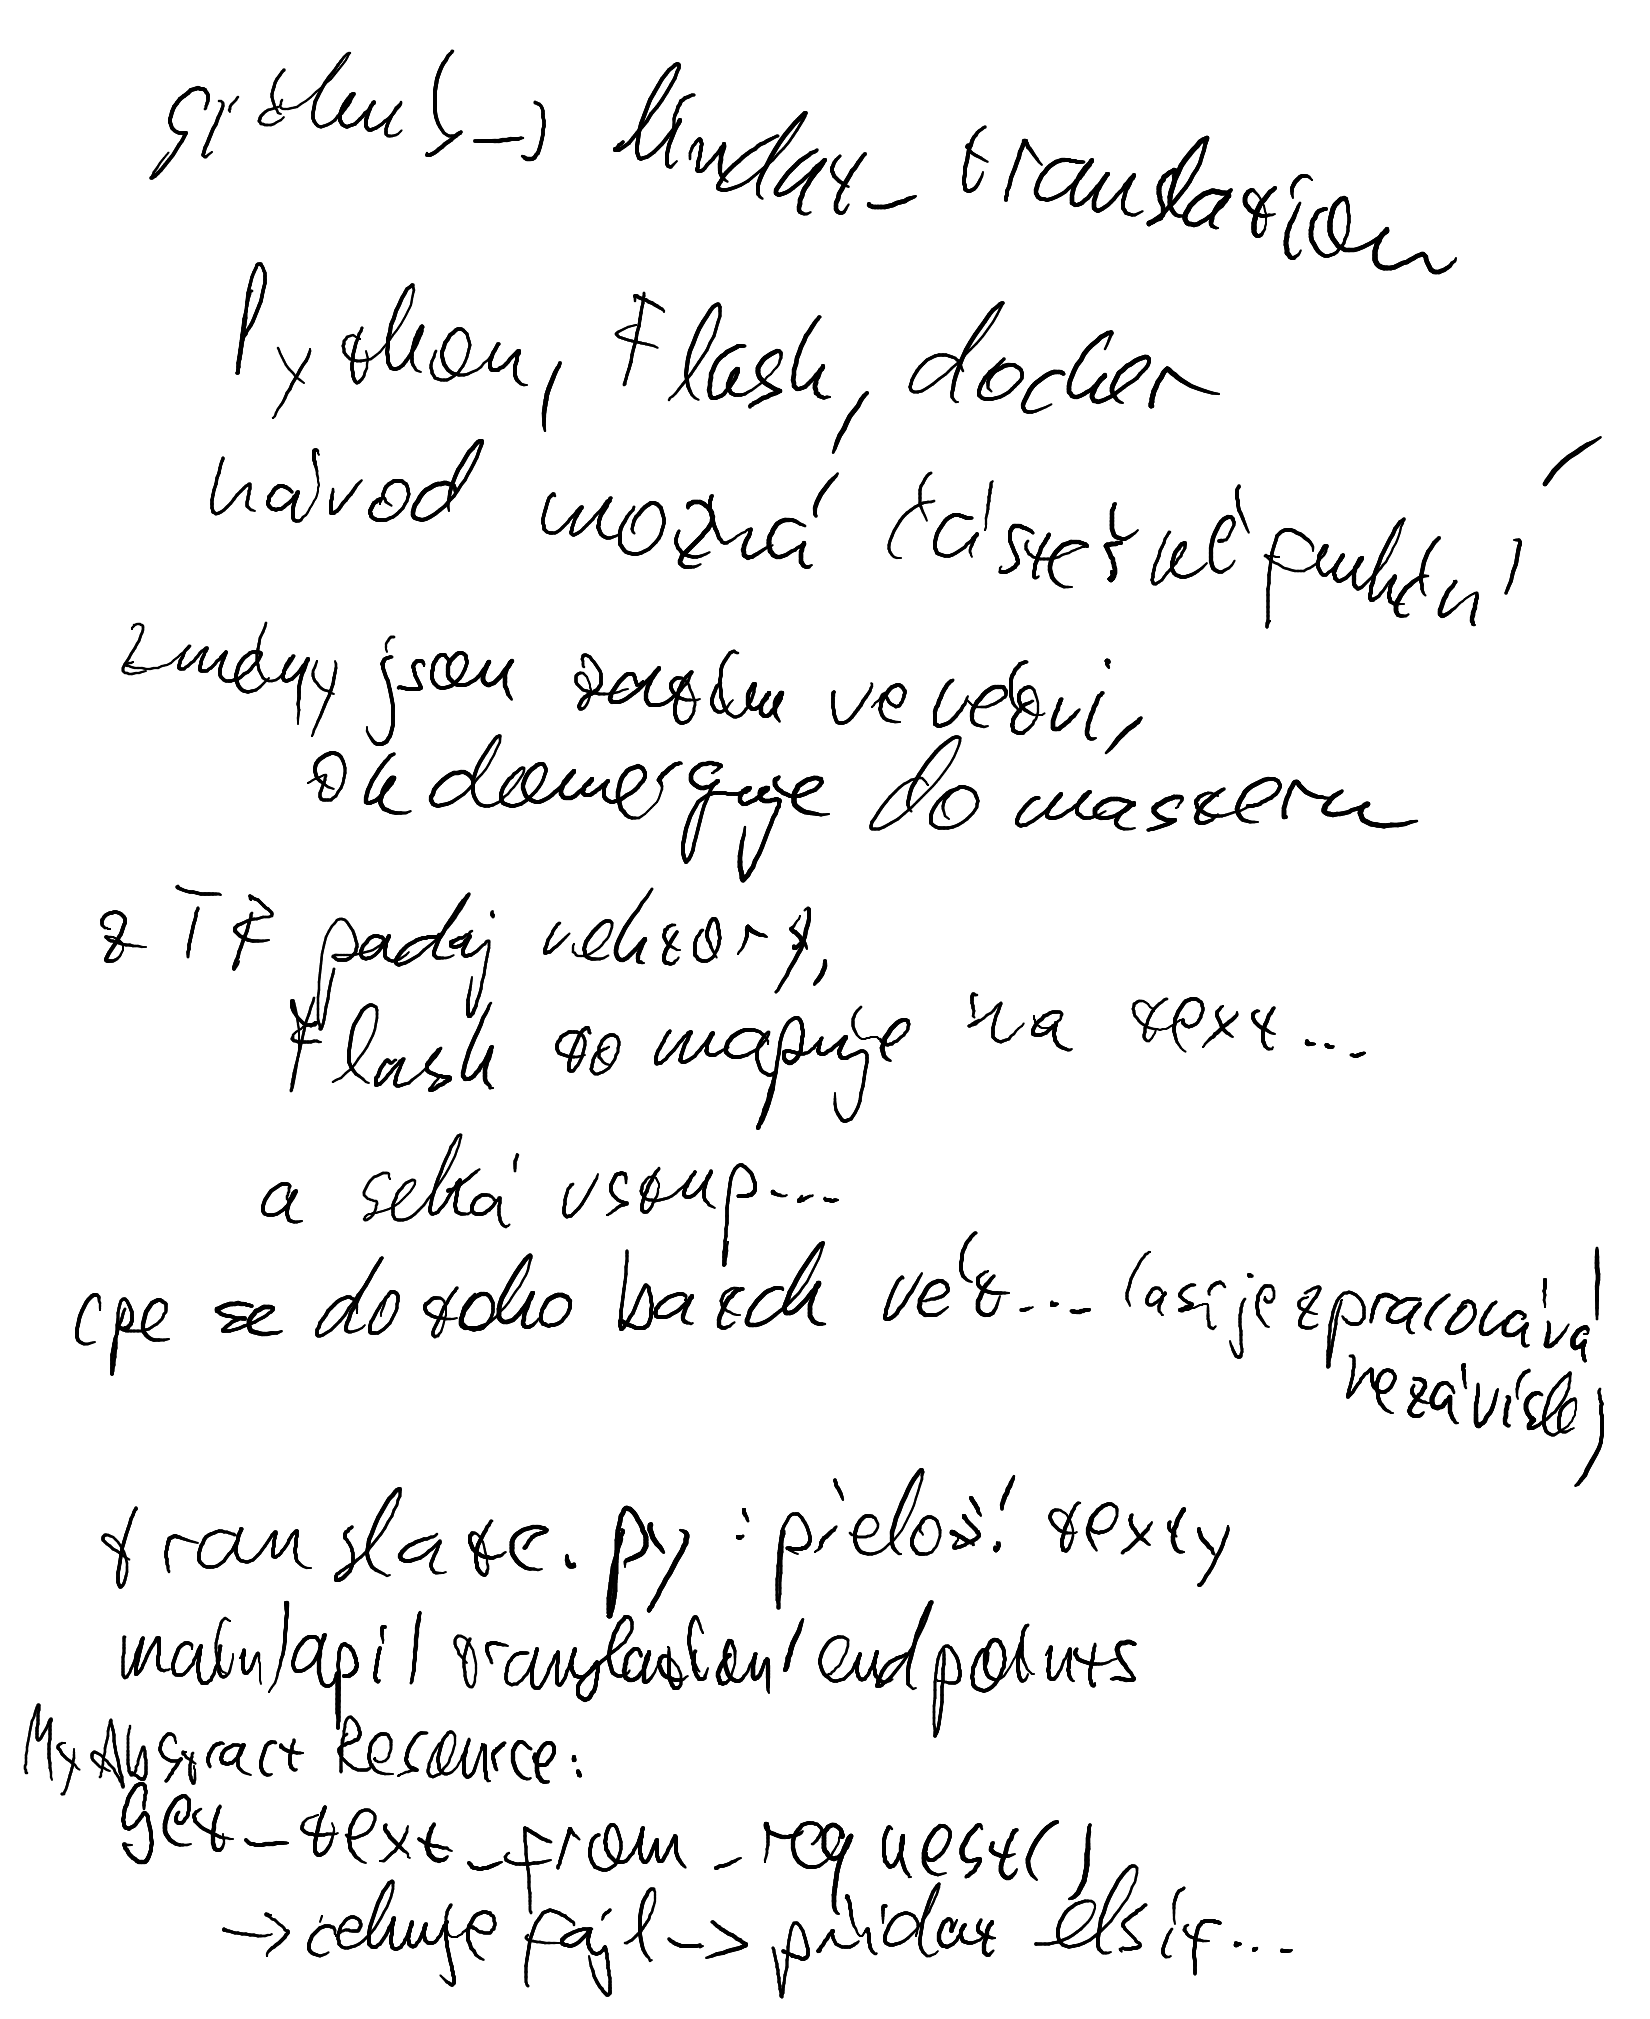 github -> lindat_translation
Python, Flask, docker
návod možná částečně funkční
změny jsou zatím ve větvi,
OK domerguje do masteru
z TF padaj vektory,
Flask to mapuje na text...
a seká vstup...
cpe se do toho batch vět... (asi je zpracovává
nezávisle)
translate.py : přelož! texty
main/api/translation/endpoints
MyAbstractResource:
get_text_from_request()
-> čekuje fajl -> přidat elsif...